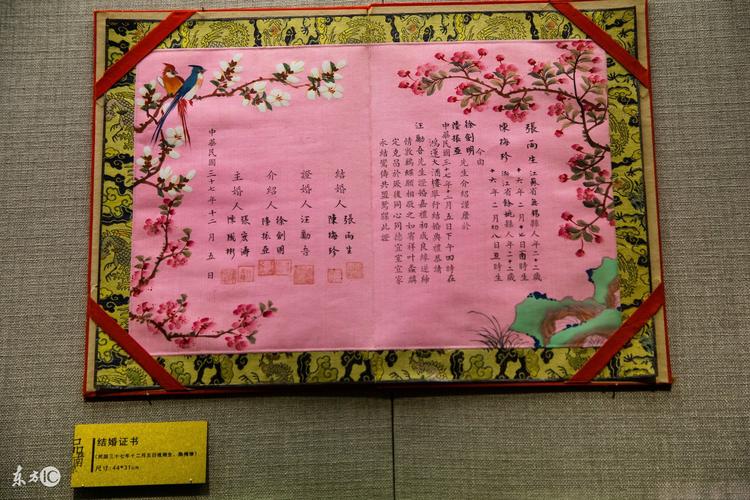 張雨生 江蘇省無錫縣人年二十二歲
十六年二月十七日酉時生
陳梅珍 浙江省餘姚縣人年二十二歲
十六年二月初八日丑時生
今由
徐劍明
陸振亞 先生介紹謹詹於
中華民國三十七年十二月五日下午四時在
鴻運大酒樓舉行結婚典禮恭請
汪勵吾先生證婚嘉禮初成良緣遂締
情敦鶼鰈願相敬之如賓祥叶螽麟
定克昌於厥後同心同德宜室宜家
永結鸞儔共盟鴛蝶此證
結婚人 張雨生
陳梅珍
證婚人 汪勵吾
介紹人 徐劍明
陸振亞
主婚人 張宏濤
陳國彬
中華民國三十七年十二月五日
结婚证书
(民国三十七年十二月五日张雨生、陈梅珍)
尺寸：44*31cm
东方IC